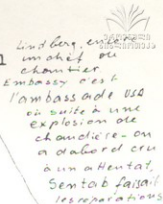 Lindberg, encore
un chef de
chantier
Embassy c'est
l'ambassade USA
où suite à une
explosion de
chaudière - on
a dabord cru
à un attentat,
Sentab faisait
les réparations